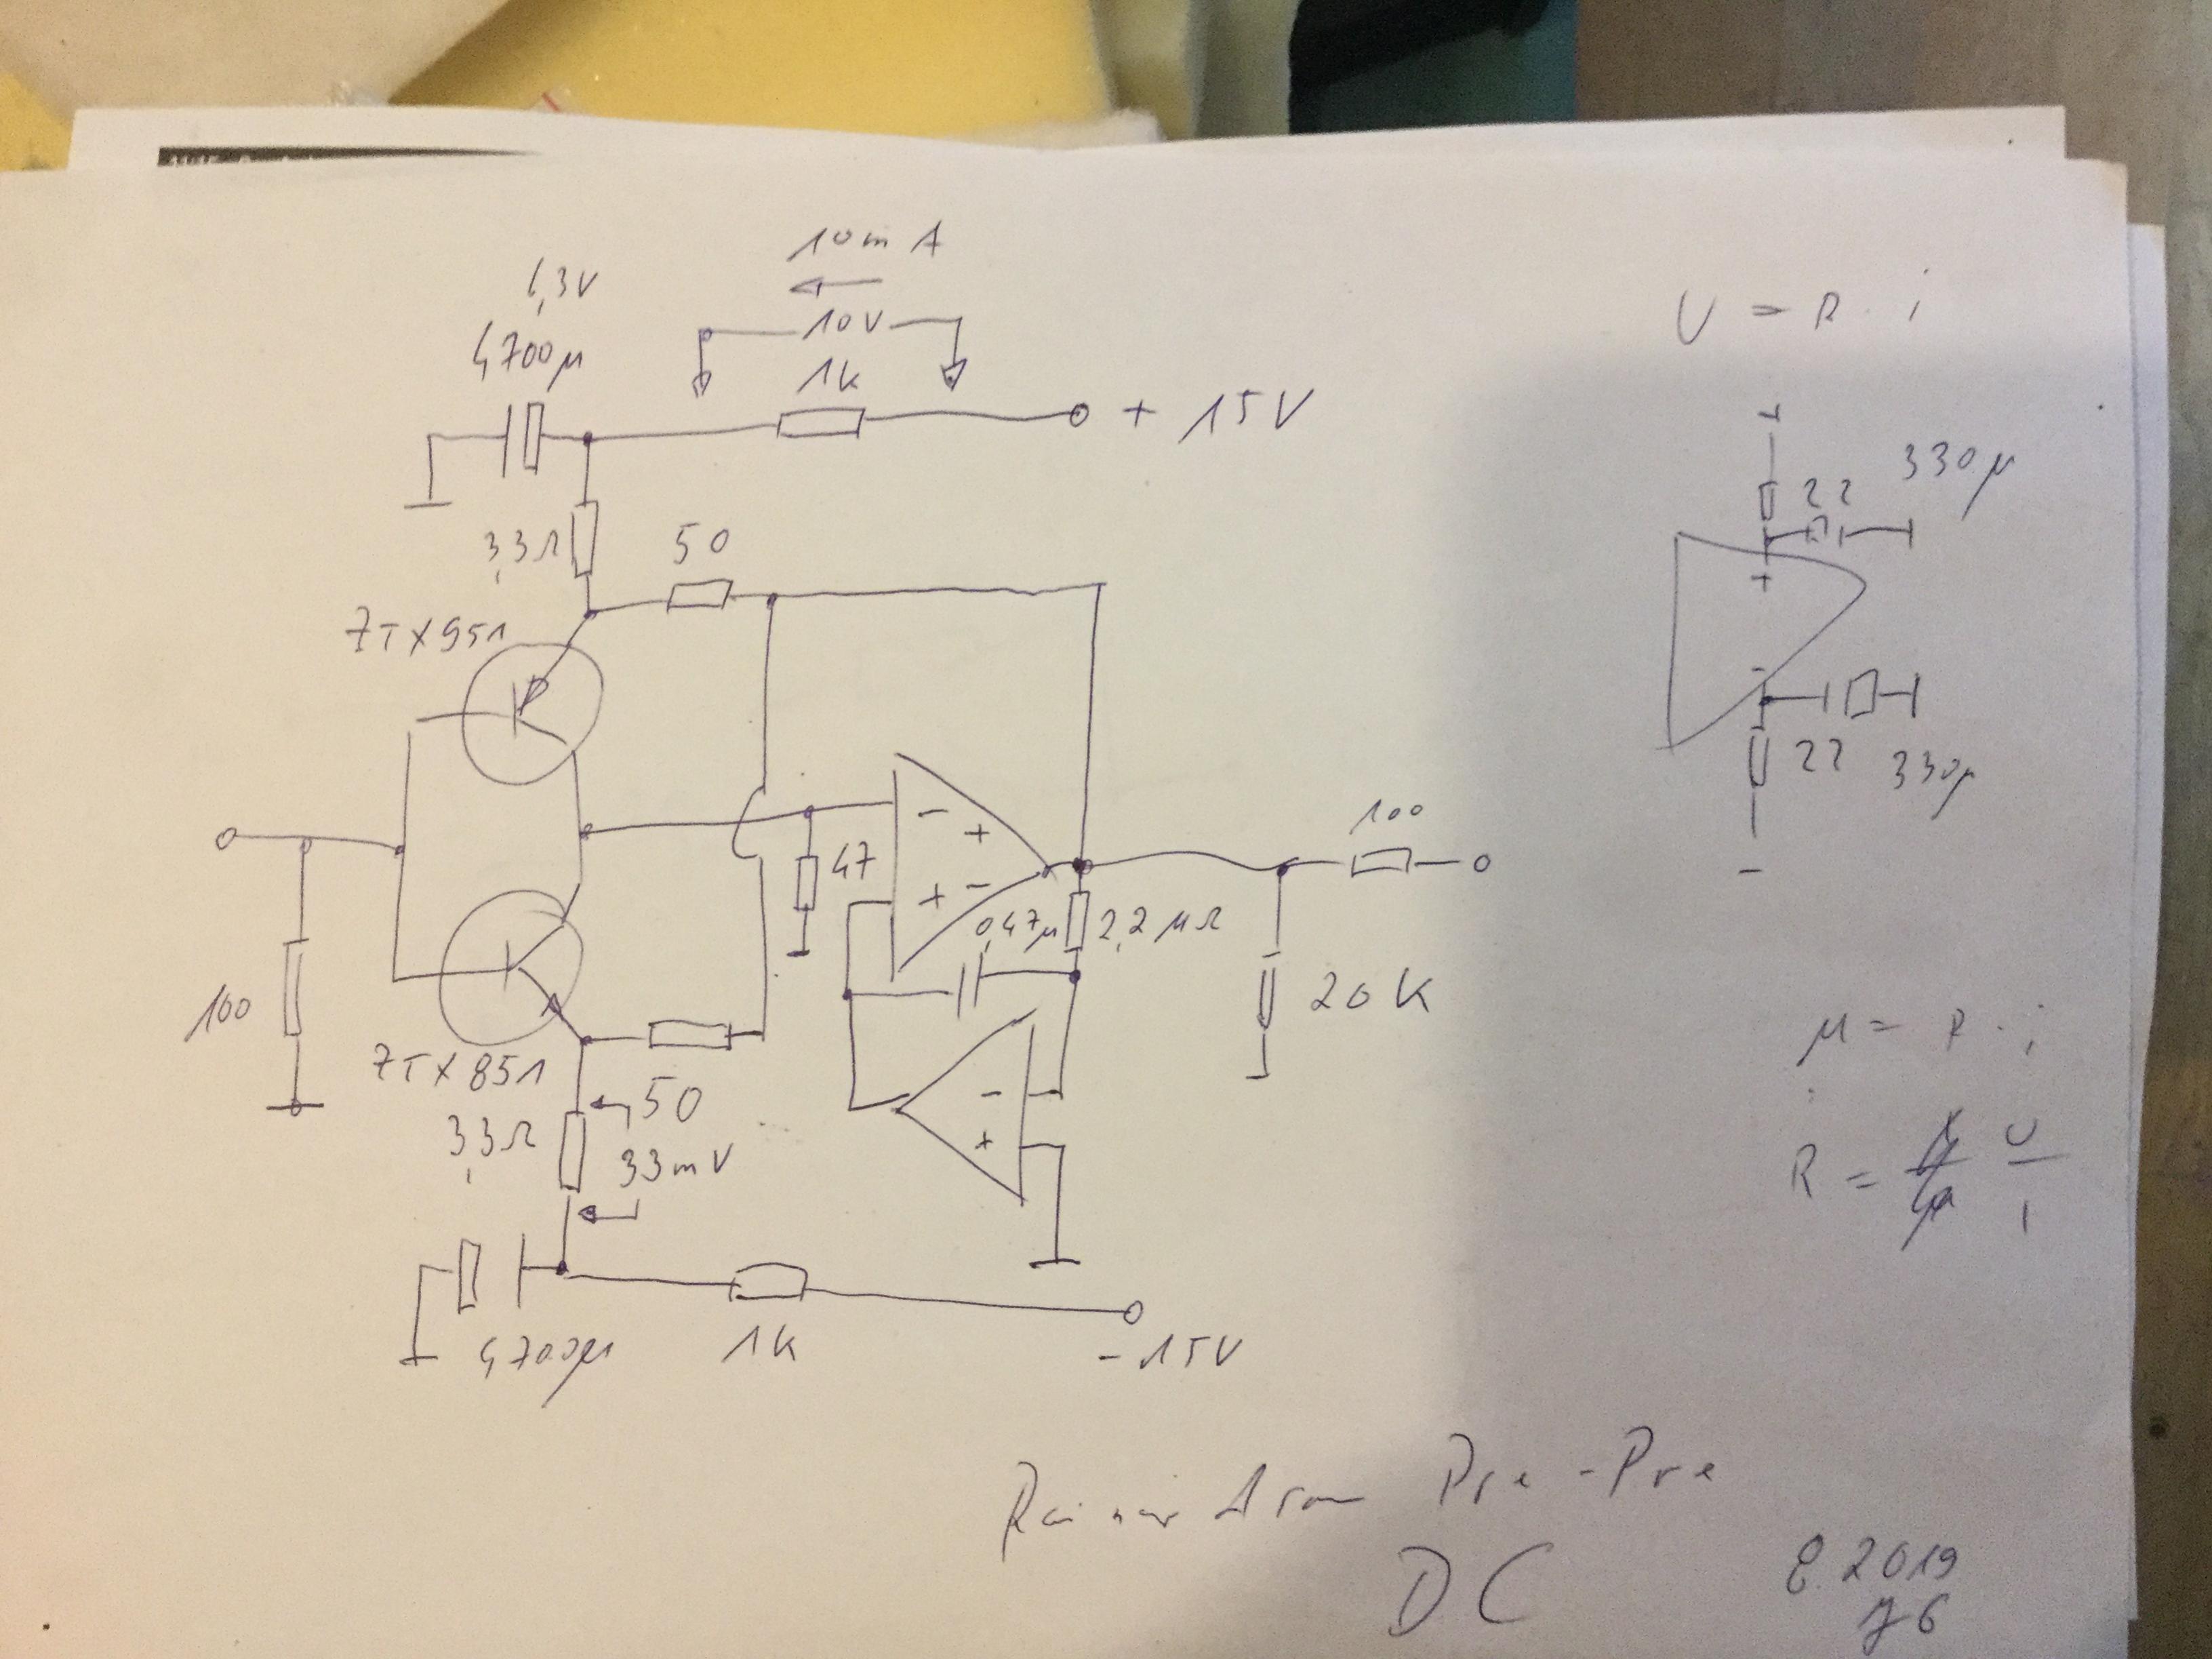 10mA
6,3V
10V
4700µ
1k
+ 15V
3,3Ω
50
ZTX951
47
100
-
+
+
-
0,47µ
2,2 MΩ
20K
100
ZTX851
50
3,3Ω
33mV
-
+
4700µ
1k
- 15V
U = R · i
+
22
330µ
+
-
22
330µ
-
µ = R · i
R = U
i
Pre-Pre
DC
8.2019